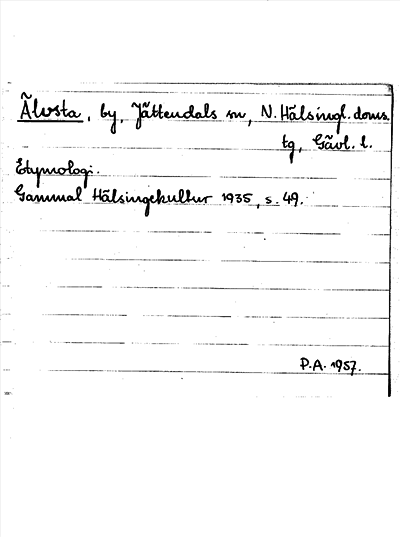 Älvsta, by, Jättendals sn, N. Hälsingl. doms.
tg, Gävl. l.
Etymologi.
Gammal Hälsingekultur 1935, s. 49.
P.A. 1957.